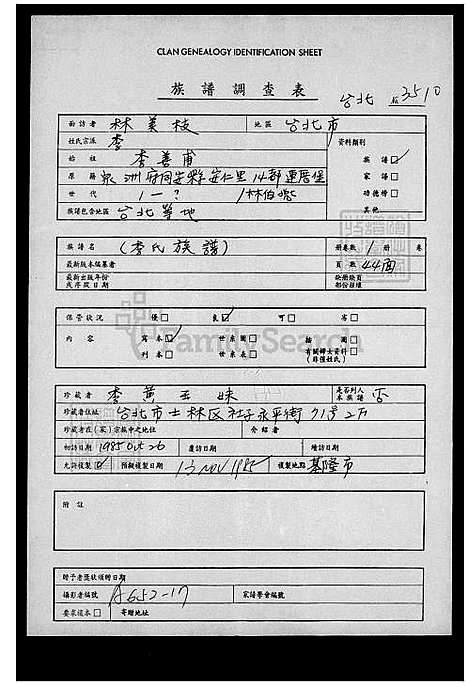 CLAN GENEALOGY IDENTIFICATION SHEET
族譜調查表
台北 3510
面訪者 林美枝 地區 台北市
姓氏宗派 李 資料類別
始祖 李善甫 族譜☑
原籍 泉洲府同安縣安仁里14都蓮居堡 家譜□
世代 1一? 功德榜□
族譜包含地區 台北等地 其他
族譜名 (李氏族譜) 冊卷數 1 冊 卷
最新版本編纂者 頁數 44面
最新出版年份或序跋日期
保管狀況 優□ 良☑ 可□ 劣□
內容 寫本☑ 世系圖□ 插圖□
刊本□ 世系表□ 有關婦女資料□(非僅姓氏)
珍藏者 李黃玉妹 是否列入本族譜 否
珍藏者住址 台北市士林区社子永平街71号2F
珍藏者在(家)宗族中之地位 介紹者
初訪日期 1985 Oct 26 覆訪日期 增訪日期
允許複製☑ 預擬複製日期 13 NOV 1985 複製地點 基隆市
附註
贈予者獎狀頒贈日期
攝影者編號 A652-17 家譜學會編號
要求複本□ 寄贈地址
FamilySearch